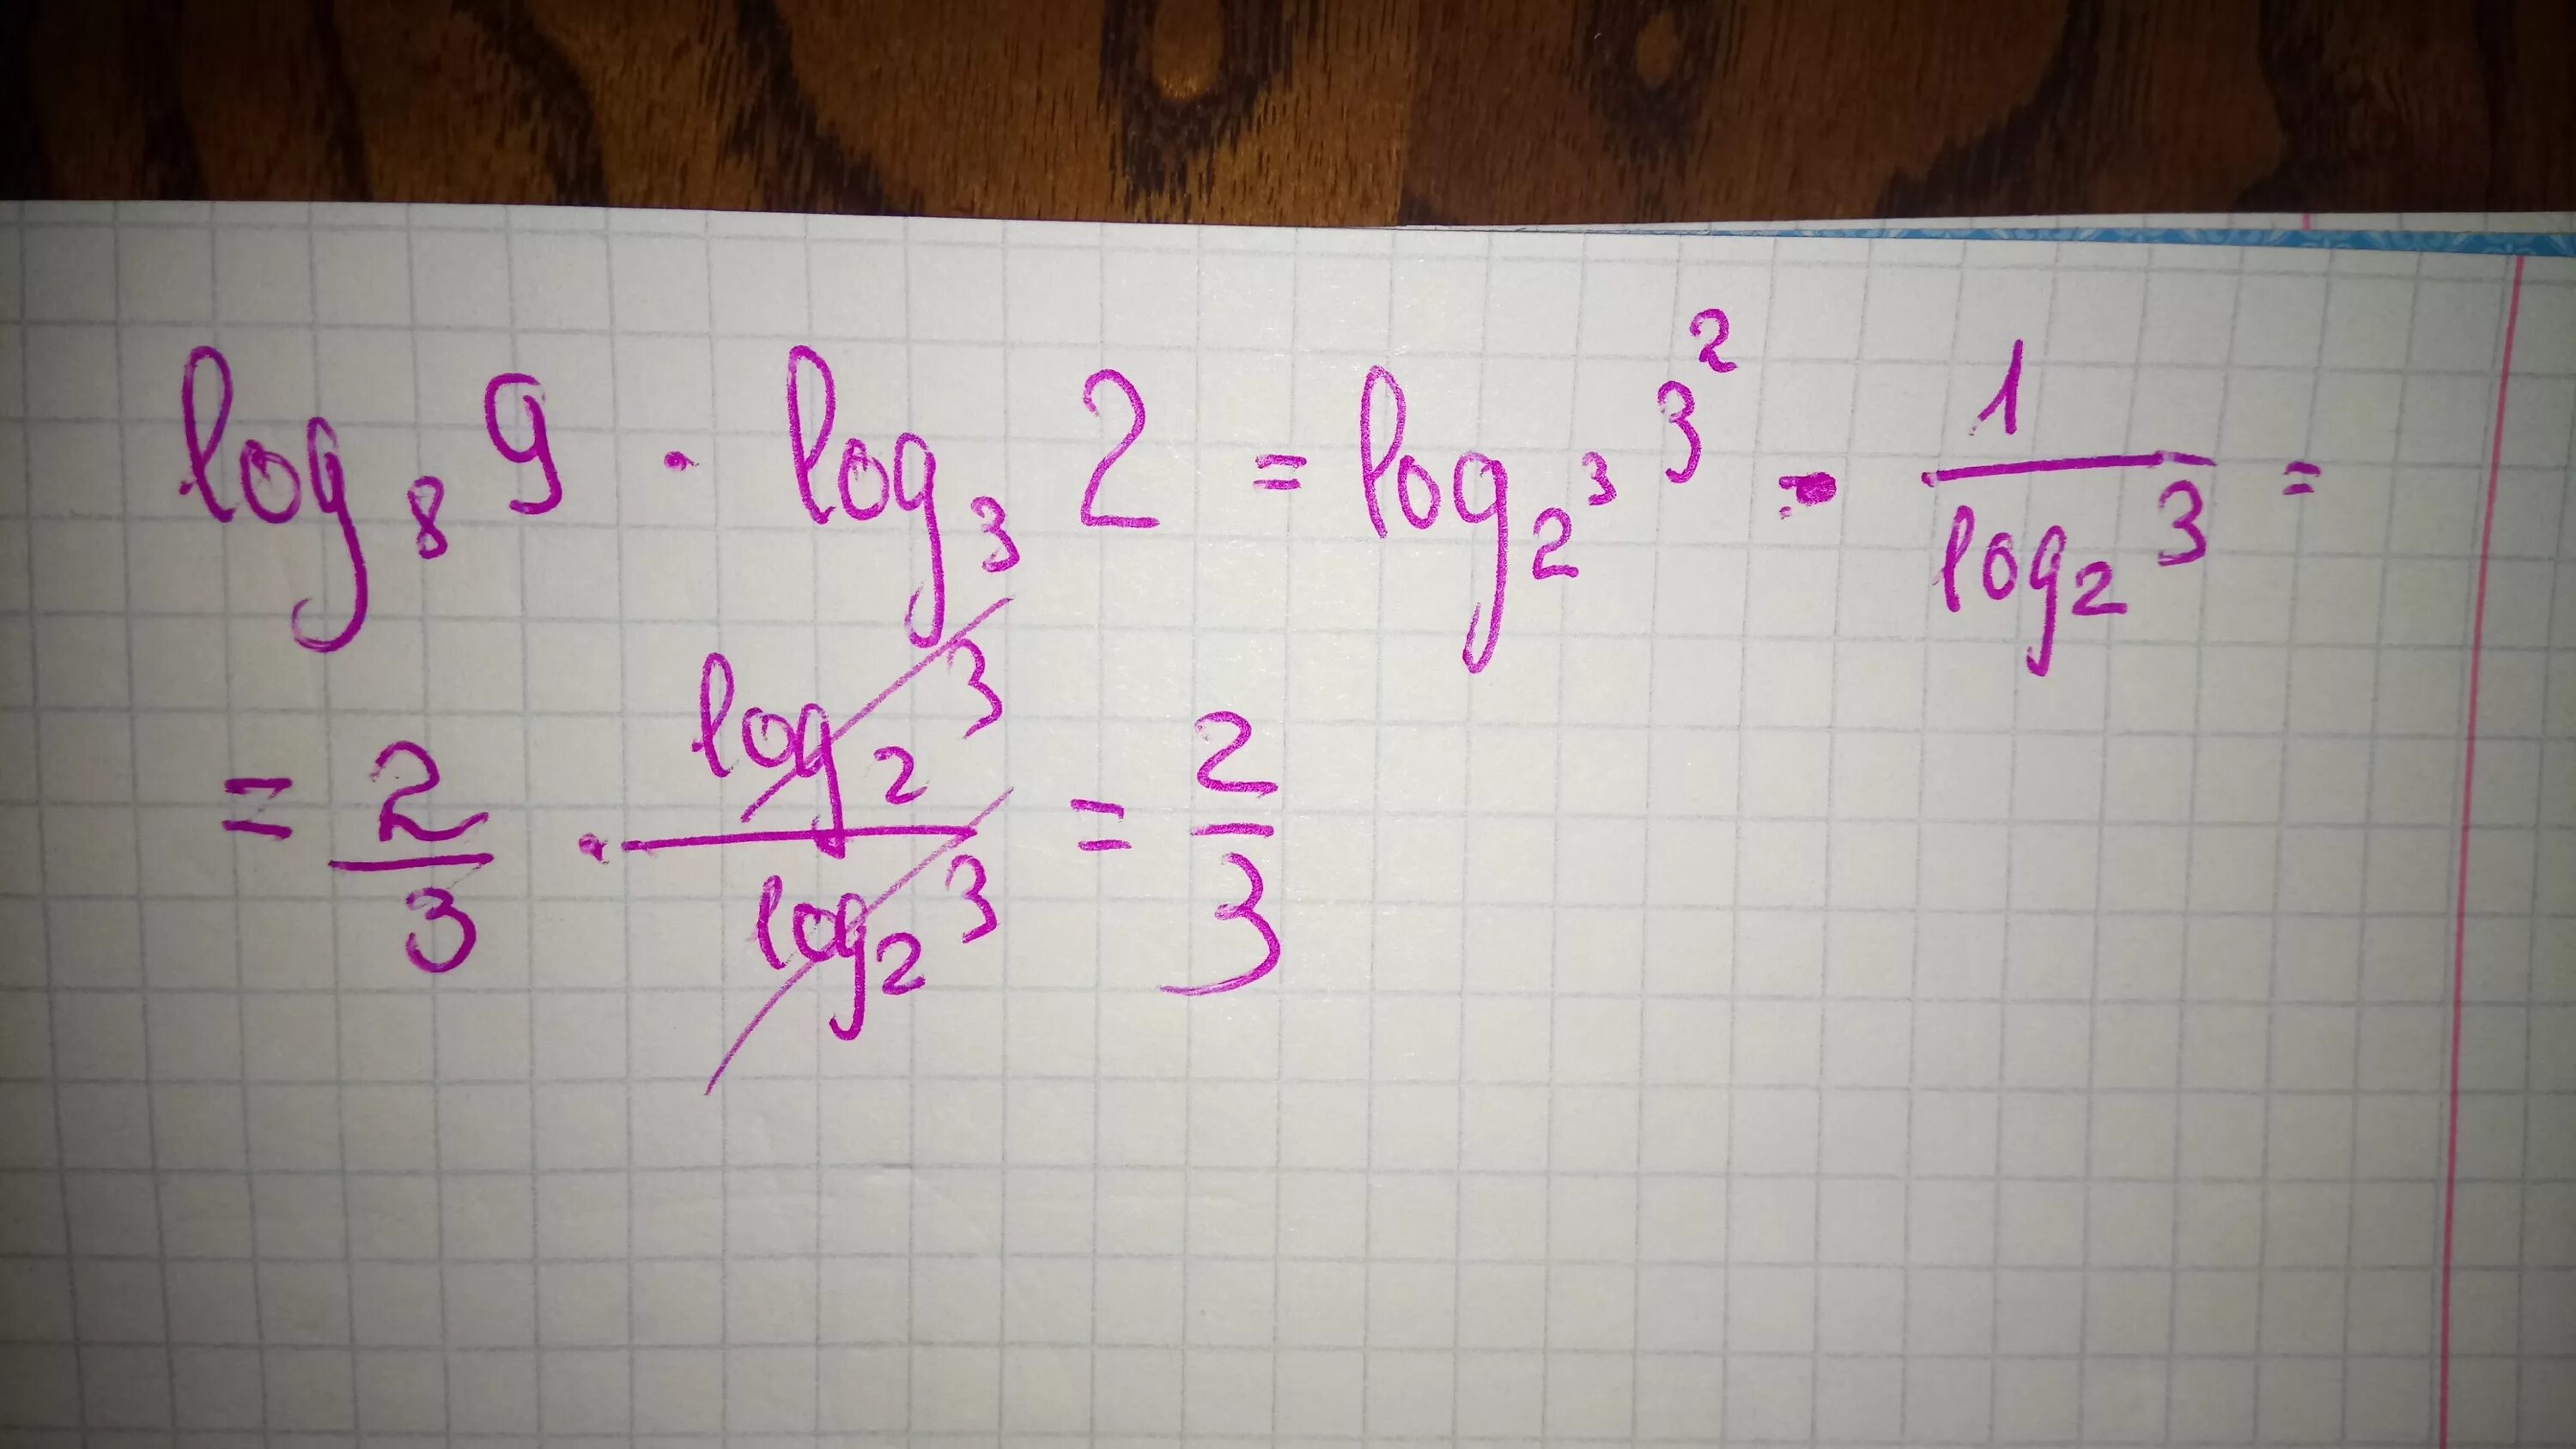 log₈ 9 · log₃ 2 = log_{2³} 3² · 1/(log₂ 3) =
= 2/3 · (log₂ 3)/(log₂ 3) = 2/3